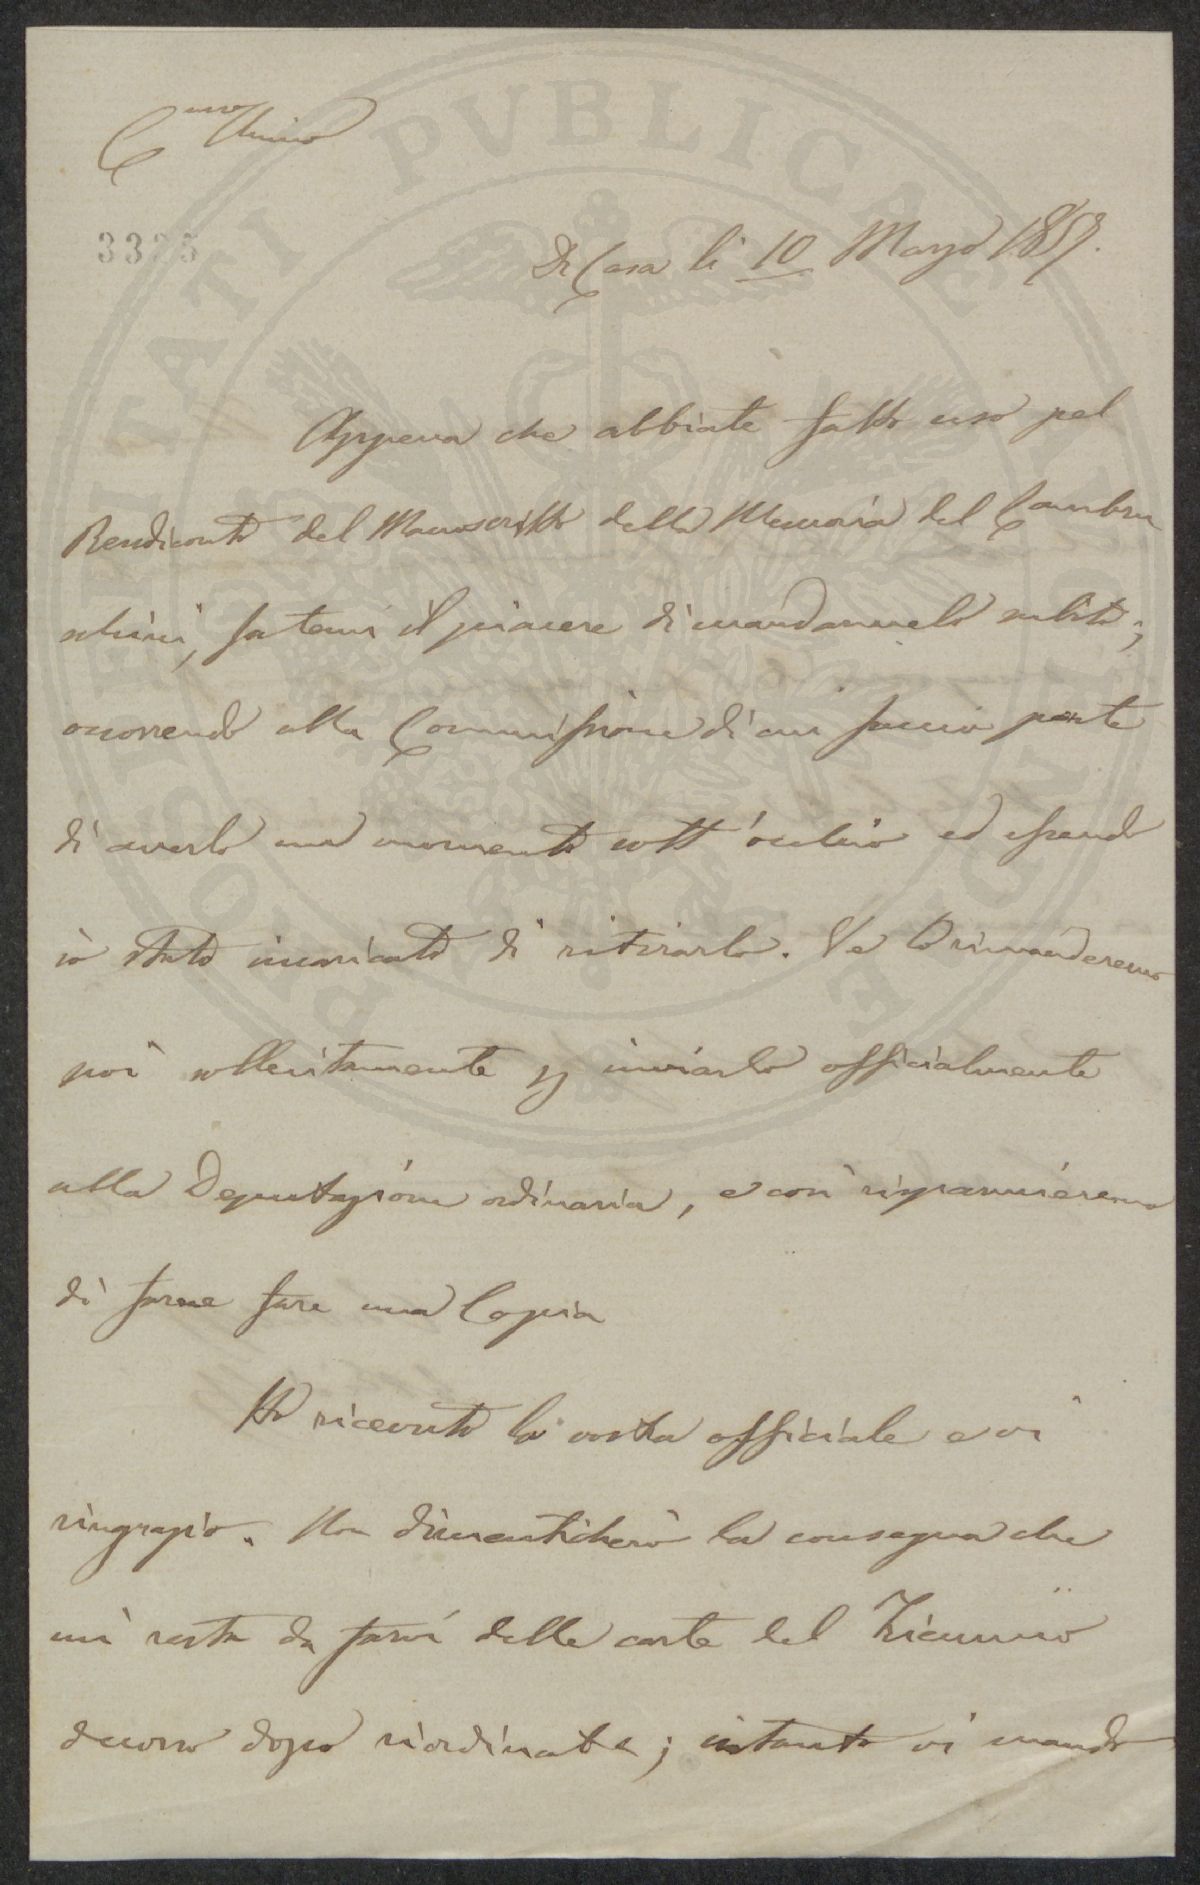 C.mo Amico
3325
Di Casa li 10 Marzo 1857.
Appena che abbiate fatto uso pel
Rendiconto del Manoscritto della Memoria del Lambru
schini, fatemi il piacere di mandarmelo subito;
occorrendo alla Commissione di cui faccio parte
di averlo un momento sott'occhio ed essendo
io stato incaricato di ritirarlo. Ve lo rimanderemo
poi sollecitamente p inviarlo officialmente
alla Deputazione ordinaria, e così risparmieremo
di farne fare una Copia
Ho ricevuto la vostra officiale e vi
ringrazio. Non dimenticherò la consegna che
mi resta da farvi delle carte del Triennio
decorso dopo riordinate; intanto vi mando
PROSPERITATI PVBLICAE AVGENDAE